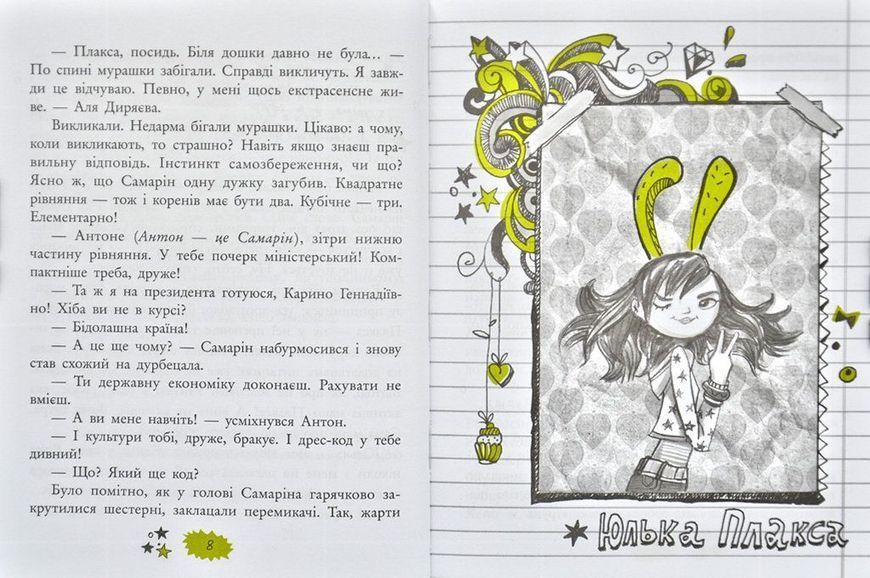 — Плакса, посидь. Біля дошки давно не була... —
По спині мурашки забігали. Справді викличуть. Я завж-
ди це відчуваю. Певно, у мені щось екстрасенсне жи-
ве. — Аля Диряєва.
Викликали. Недарма бігали мурашки. Цікаво: а чому,
коли викликають, то страшно? Навіть якщо знаєш пра-
вильну відповідь. Інстинкт самозбереження, чи що?
Ясно ж, що Самарін одну дужку загубив. Квадратне
рівняння — тож і коренів має бути два. Кубічне — три.
Елементарно!
— Антоне (Антон — це Самарін), зітри нижню
частину рівняння. У тебе почерк міністерський! Ком-
пактніше треба, друже!
— Та ж я на президента готуюся, Карино Геннадіїв-
но! Хіба ви не в курсі?
— Бідолашна країна!
— А це ще чому? — Самарін набурмосився і знову
став схожий на дурбецала.
— Ти державну економіку доконаєш. Рахувати не
вмієш.
— А ви мене навчіть! — усміхнувся Антон.
— І культури тобі, друже, бракує. І дрес-код у тебе
дивний!
— Що? Який ще код?
Було помітно, як у голові Самаріна гарячково за-
крутилися шестерні, заклацали перемикачі. Так, жарти
8
Юлька Плакса